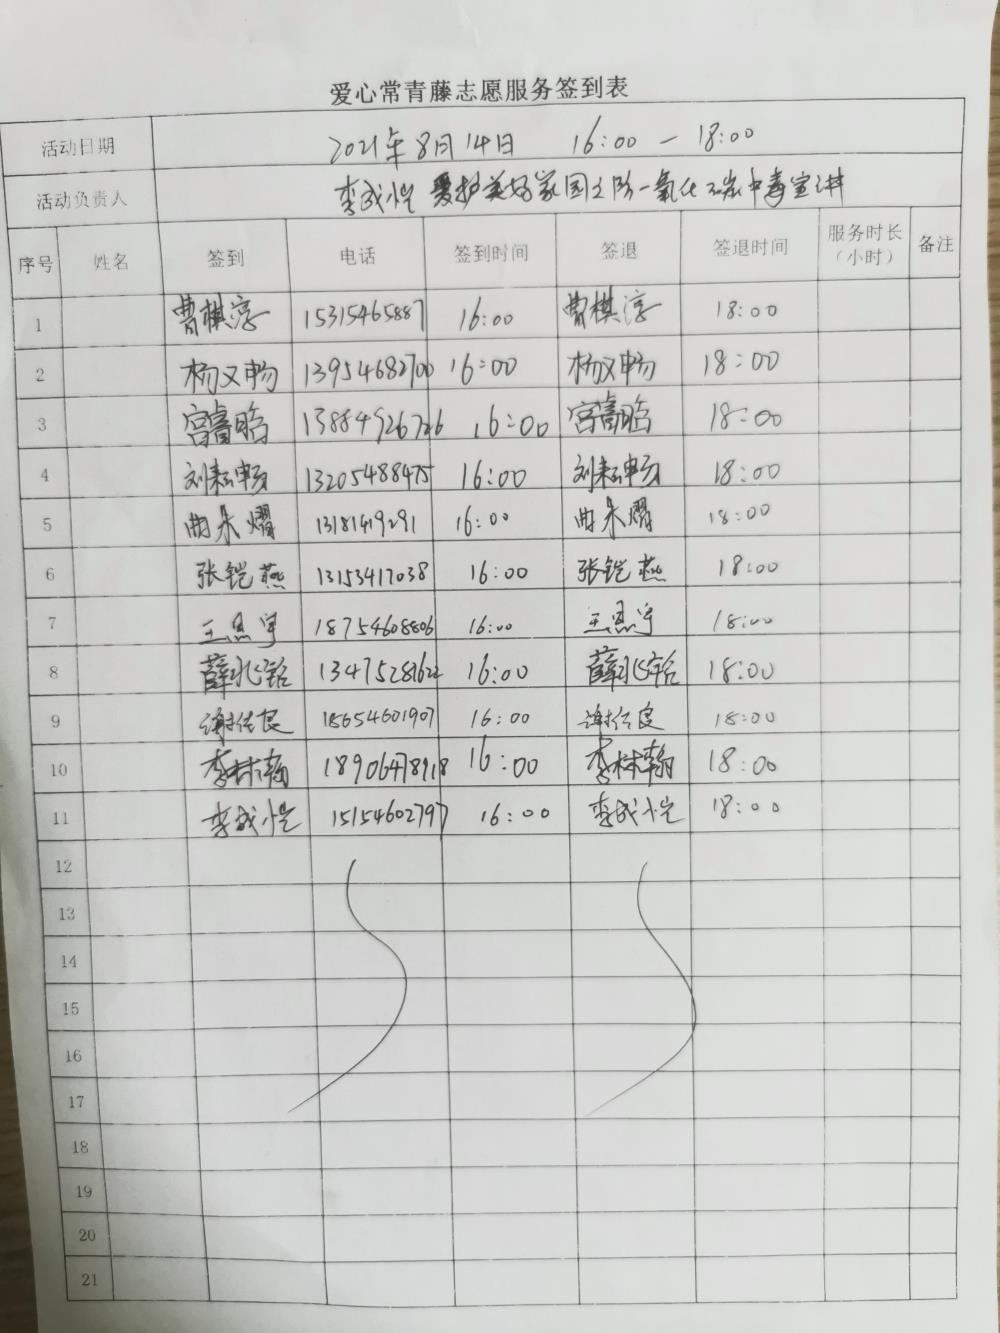 爱心常青藤志愿服务签到表
活动日期 2021年8月14日 16:00 — 18:00
活动负责人 李成恺 爱护美好家园之防一氧化碳中毒宣讲
序号 姓名 签到 电话 签到时间 签退 签退时间 服务时长（小时） 备注
1 曹棋淳 15315465887 16:00 曹棋淳 18:00
2 杨又畅 13954682700 16:00 杨又畅 18:00
3 宫睿晗 13884926726 16:00 宫睿晗 18:00
4 刘耘畅 13205488475 16:00 刘耘畅 18:00
5 曲朱熠 13181419291 16:00 曲朱熠 18:00
6 张铠燕 13153417038 16:00 张铠燕 18:00
7 王恩宇 18754608806 16:00 王恩宇 18:00
8 薛兆铭 13475281622 16:00 薛兆铭 18:00
9 谢伝良 18654601907 16:00 谢伝良 18:00
10 李林翰 18906478918 16:00 李林翰 18:00
11 李成恺 15154602797 16:00 李成恺 18:00
12
13
14
15
16
17
18
19
20
21